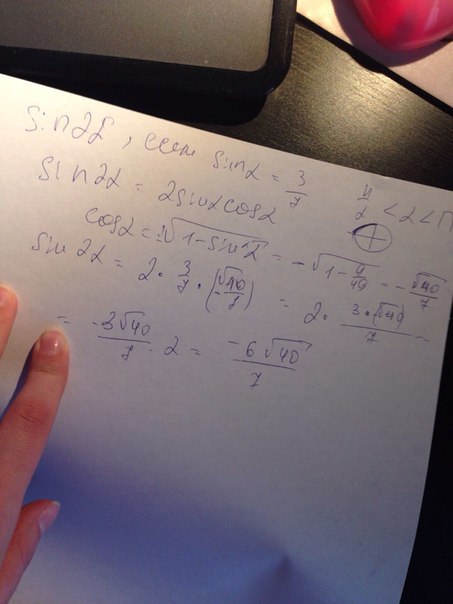 sin2α, если sinα = 3/7 π/2 < α < π
sin2α = 2sinα cosα
cosα = ±√(1-sin²α) = -√(1-9/49) = -√40/7
sin2α = 2 · 3/7 · (-√40/7) = 2 · 3·√40/7 =
= -3√40/7 · 2 = -6√40/7